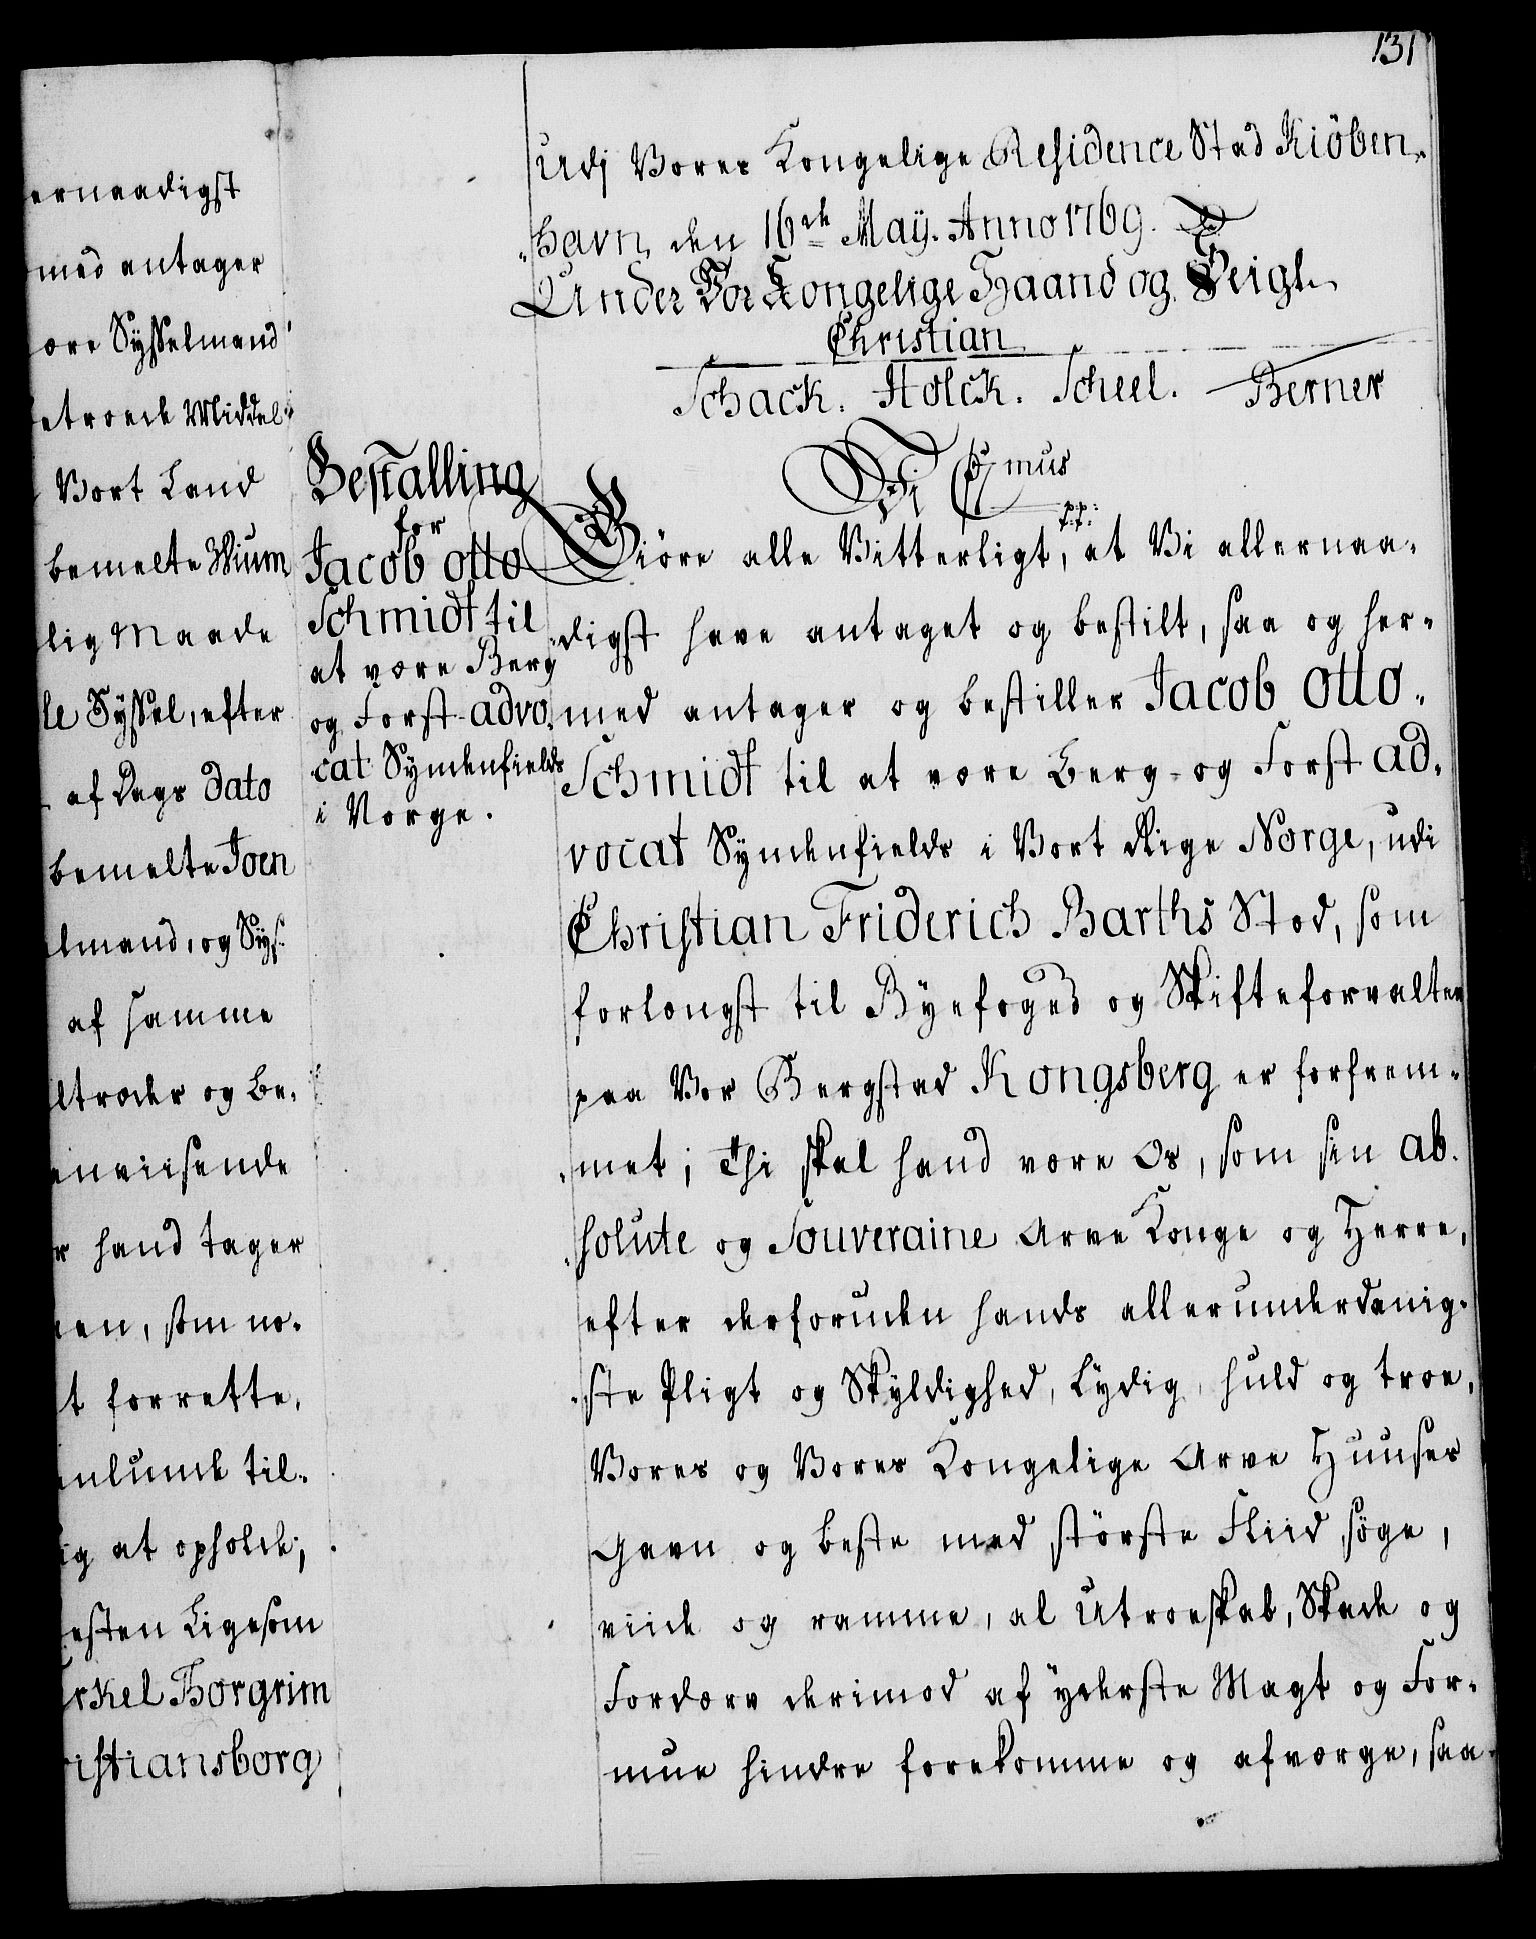 131
ernaadigst
med antager
ære Sysselmand
etræde Middel-
Vort Land
bemelte Wium
lig Maade
le Syssel, efter
af Dags Dato
bemelte Joen
lmand, og Sys-
af samme
ltræder og be-
anviisende
r hand tager
en, som no-
t forrette,
nlunde til-
ig at opholde;
esten Ligesom
rkel Thorgrim
istiansborg
Bestalling
for
Jacob Otto
Schmidt til
at være Berg
og Forst-advo-
cat Syndenfields
i Norge.
Udj Vores Kongelige Residence Stad Kiöben-
havn, den 16de Maÿ. Anno 1769.
Under Vor Kongelige Haand og Seigl.
Christian
Schack. Holck. Scheel. Berner
Vi C7mus
p:p:
t:t:
Giöre alle Vitterligt, at Vi allernaa-
digst have antaget og bestilt, saa og her-
med antager og bestiller Jacob Otto
Schmidt til at være Berg- og Forst ad-
vocat Syndenfields i Vort Rige Norge, udi
Christian Friderich Barths Stæd, som
forlængst til Byefoged og Skifteforvalter
paa Vor Bergstad Kongsberg er forfrem-
met; Thi skal hand være Os, som sin ab-
solute og Souveraine Arve Konge og Herre,
efter derforuden hands allerunderdanig-
ste Pligt og Skyldighed, Lydig, huld og troe,
Vores og Vores Kongelige Arve Huuses
Gavn og beste med störste Fliid söge,
viide og ramme, al Utroeskab, Skade og
Fordærv derimod af ÿderste Magt og For-
mue hindre forekomme og afværge, saa